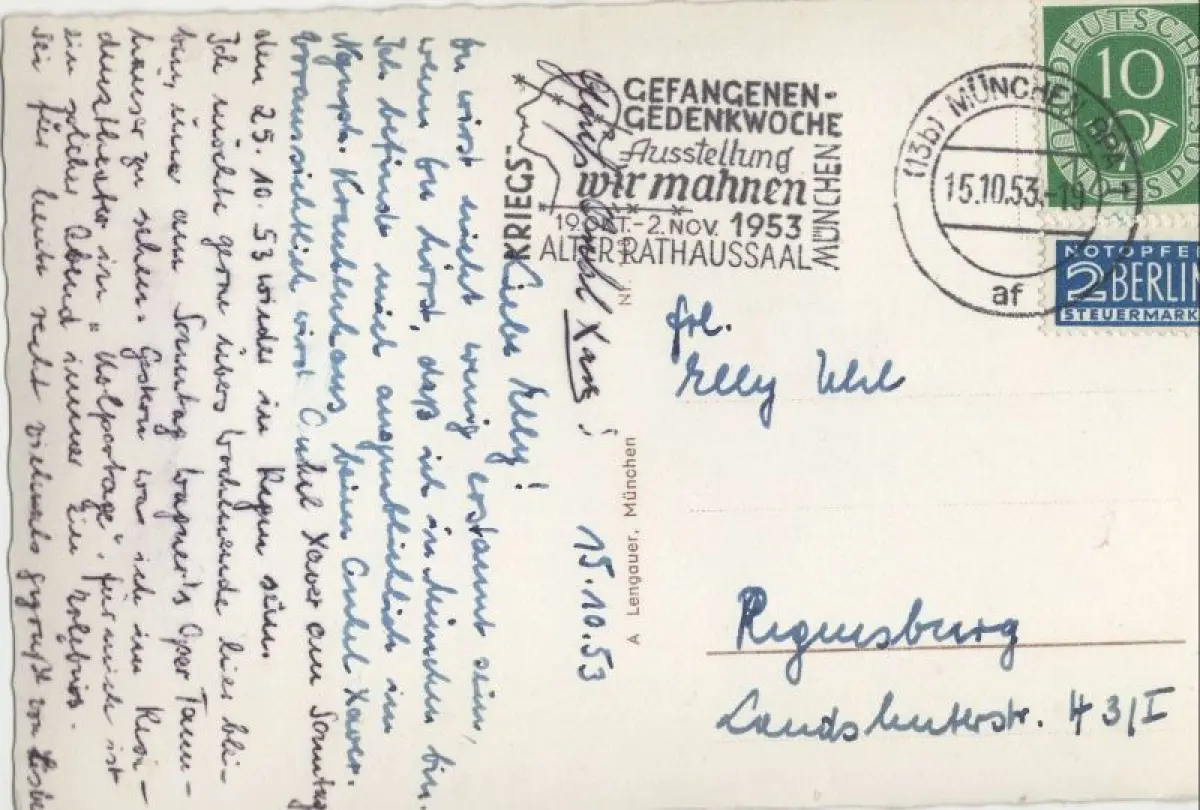 15.10.53
Liebe Elly!
du wirst nicht wenig erstaunt sein,
wenn du hörst, daß ich in München bin.
Ich befinde mich augenblicklich im
Krankenhaus beim Onkel Xaver.
Voraussichtlich wird Onkel Xaver am Sonntag
den 25.10.53 wieder in Regensb. sein.
Ich möchte gerne übers Wochenende hier blei-
ben, um am Sonntag Wagner's Oper Tann-
häuser zu sehen. Gestern war ich im Resi-
denztheater in "Kolportage". Für mich ist
ein solcher Abend immer ein Erlebnis.
Sei für heute recht vielmals gegrüßt von
Onkel Xaver!
KRIEGS-
GEFANGENEN-
GEDENKWOCHE
Ausstellung
wir mahnen
19. OKT.-2. NOV. 1953
ALTER RATHAUSSAAL
MÜNCHEN
(13b) MÜNCHEN BPA
15.10.53.-19
af
DEUTSCHE
BUNDESPOST
10
NOTOPFER
2 BERLIN
STEUERMARKE
Nr.
A Lengauer, München
Frl.
Elly Uhl
Regensburg
Landshuterstr. 43/I